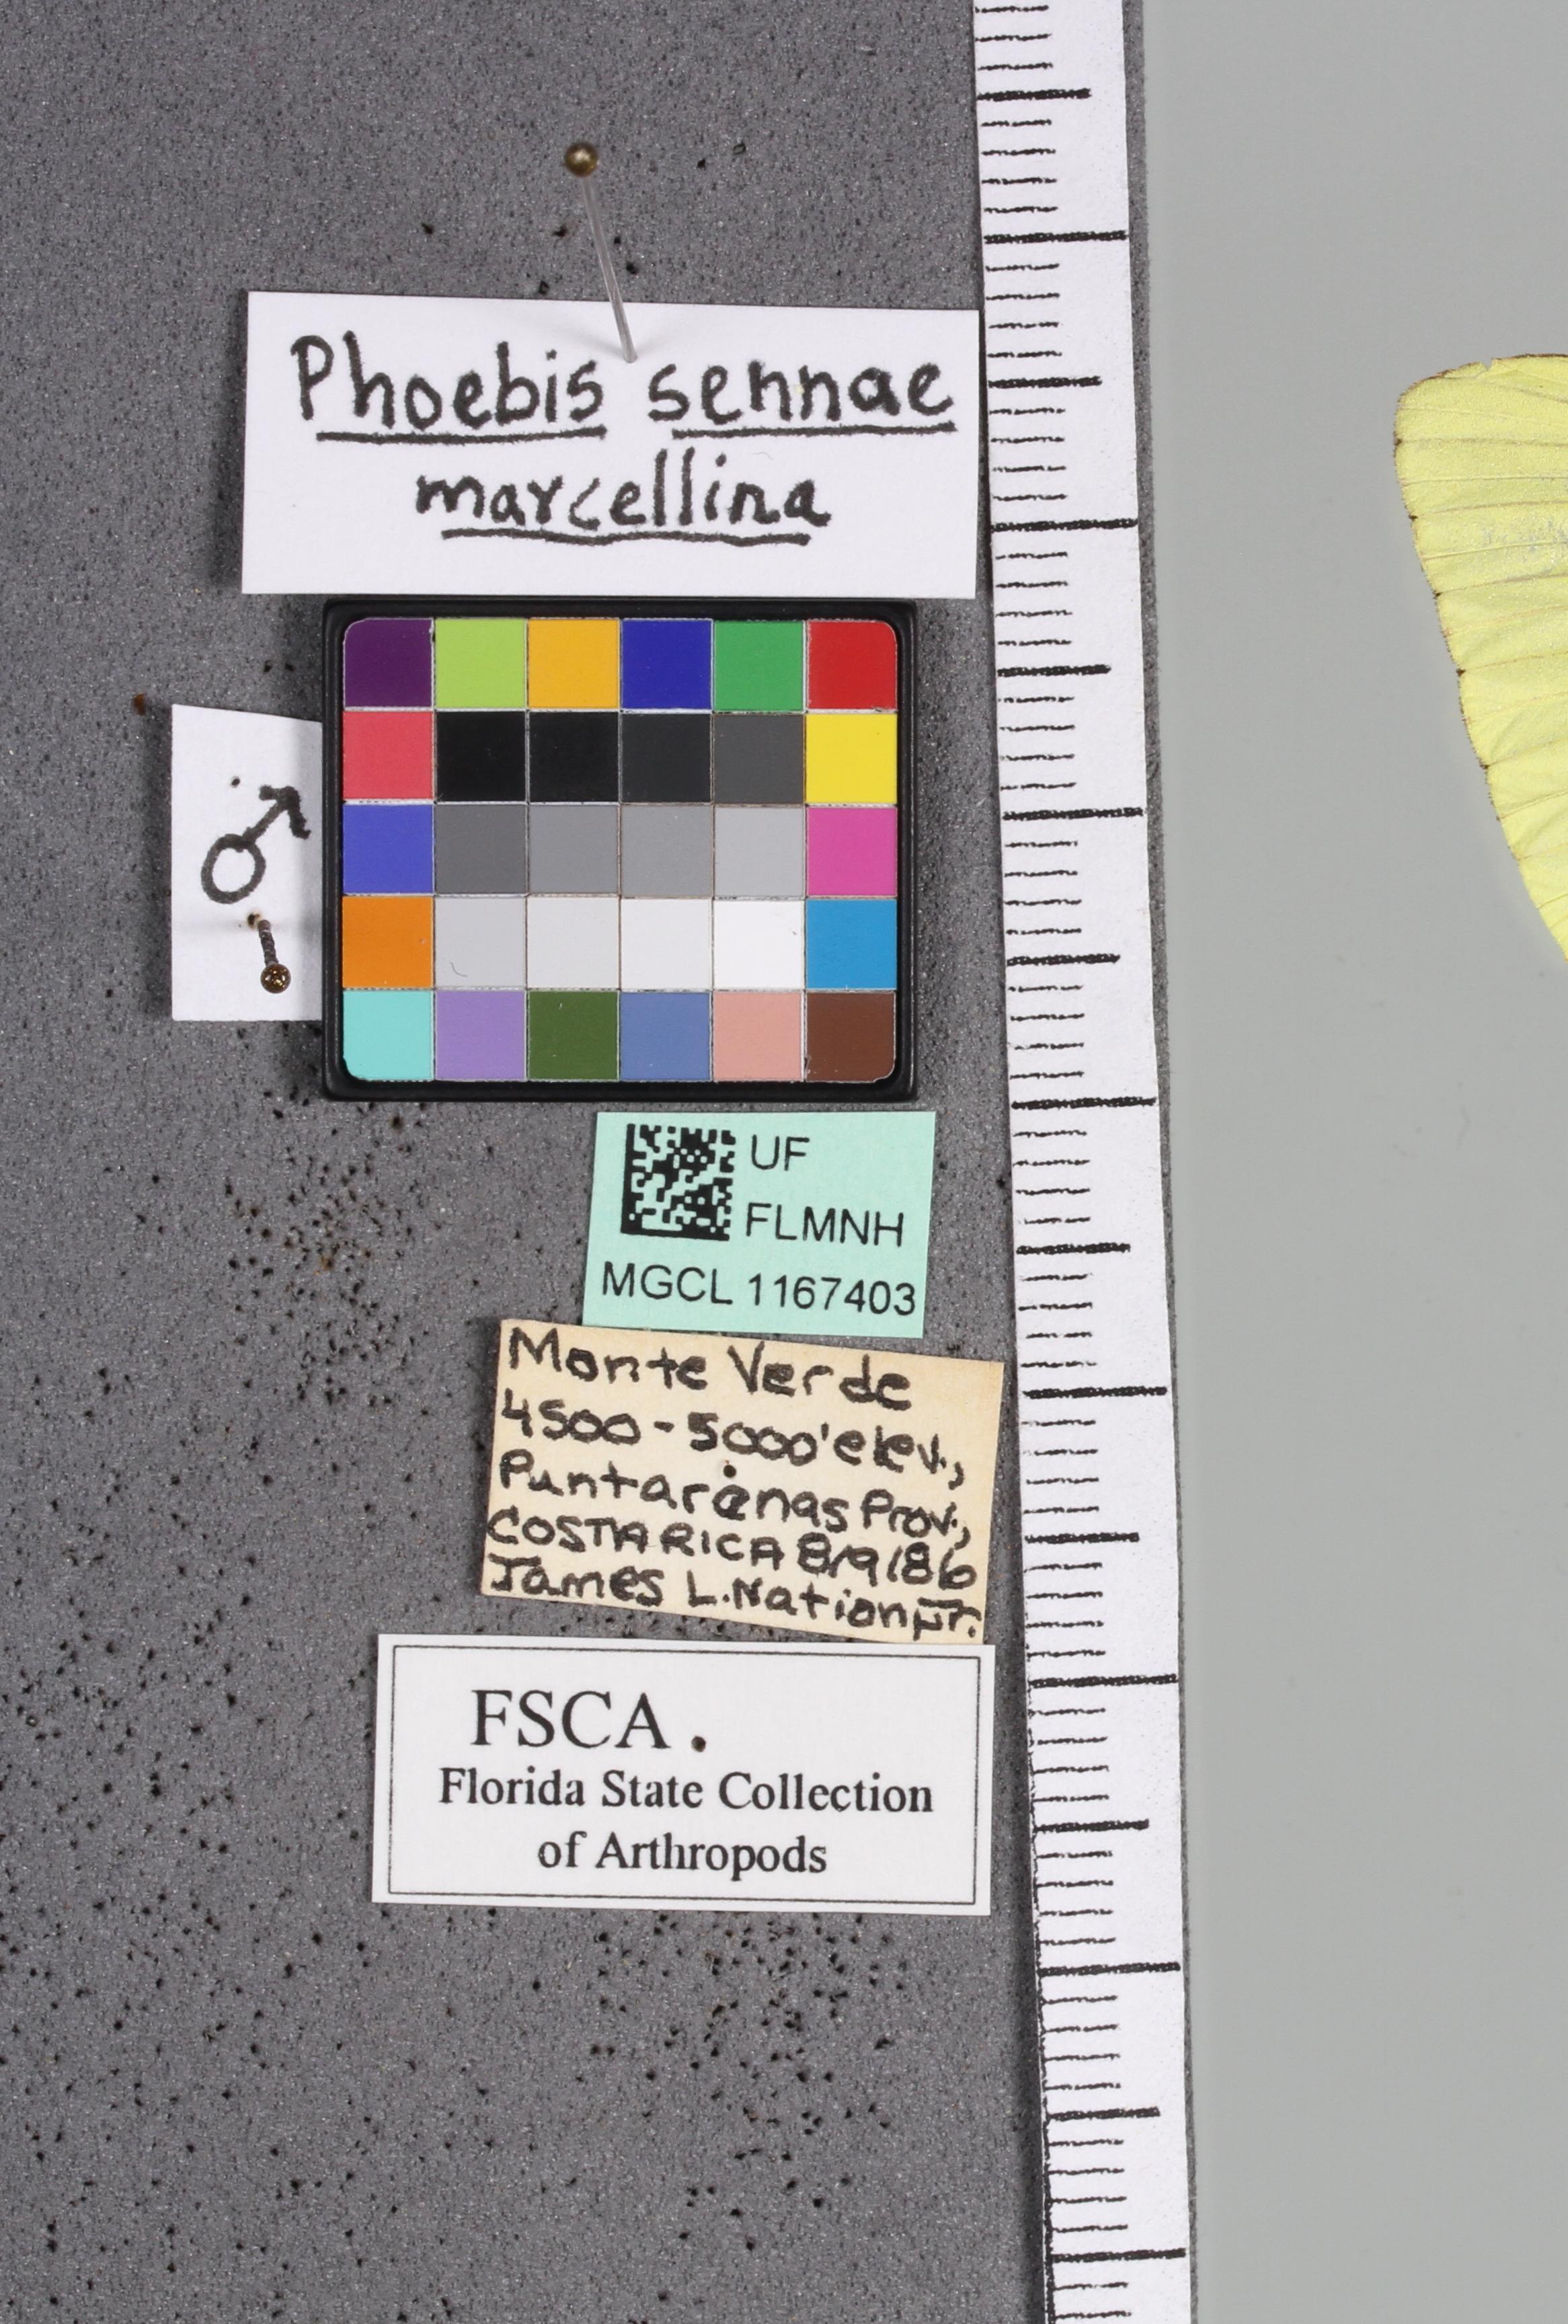 Phoebis sennae
marcellina
♂
UF
FLMNH
MGCL 1167403
Monte Verde
4500-5000' elev.,
Puntarenas Prov.,
COSTA RICA 8/9/86
James L. Nation Jr.
FSCA
Florida State Collection
of Arthropods